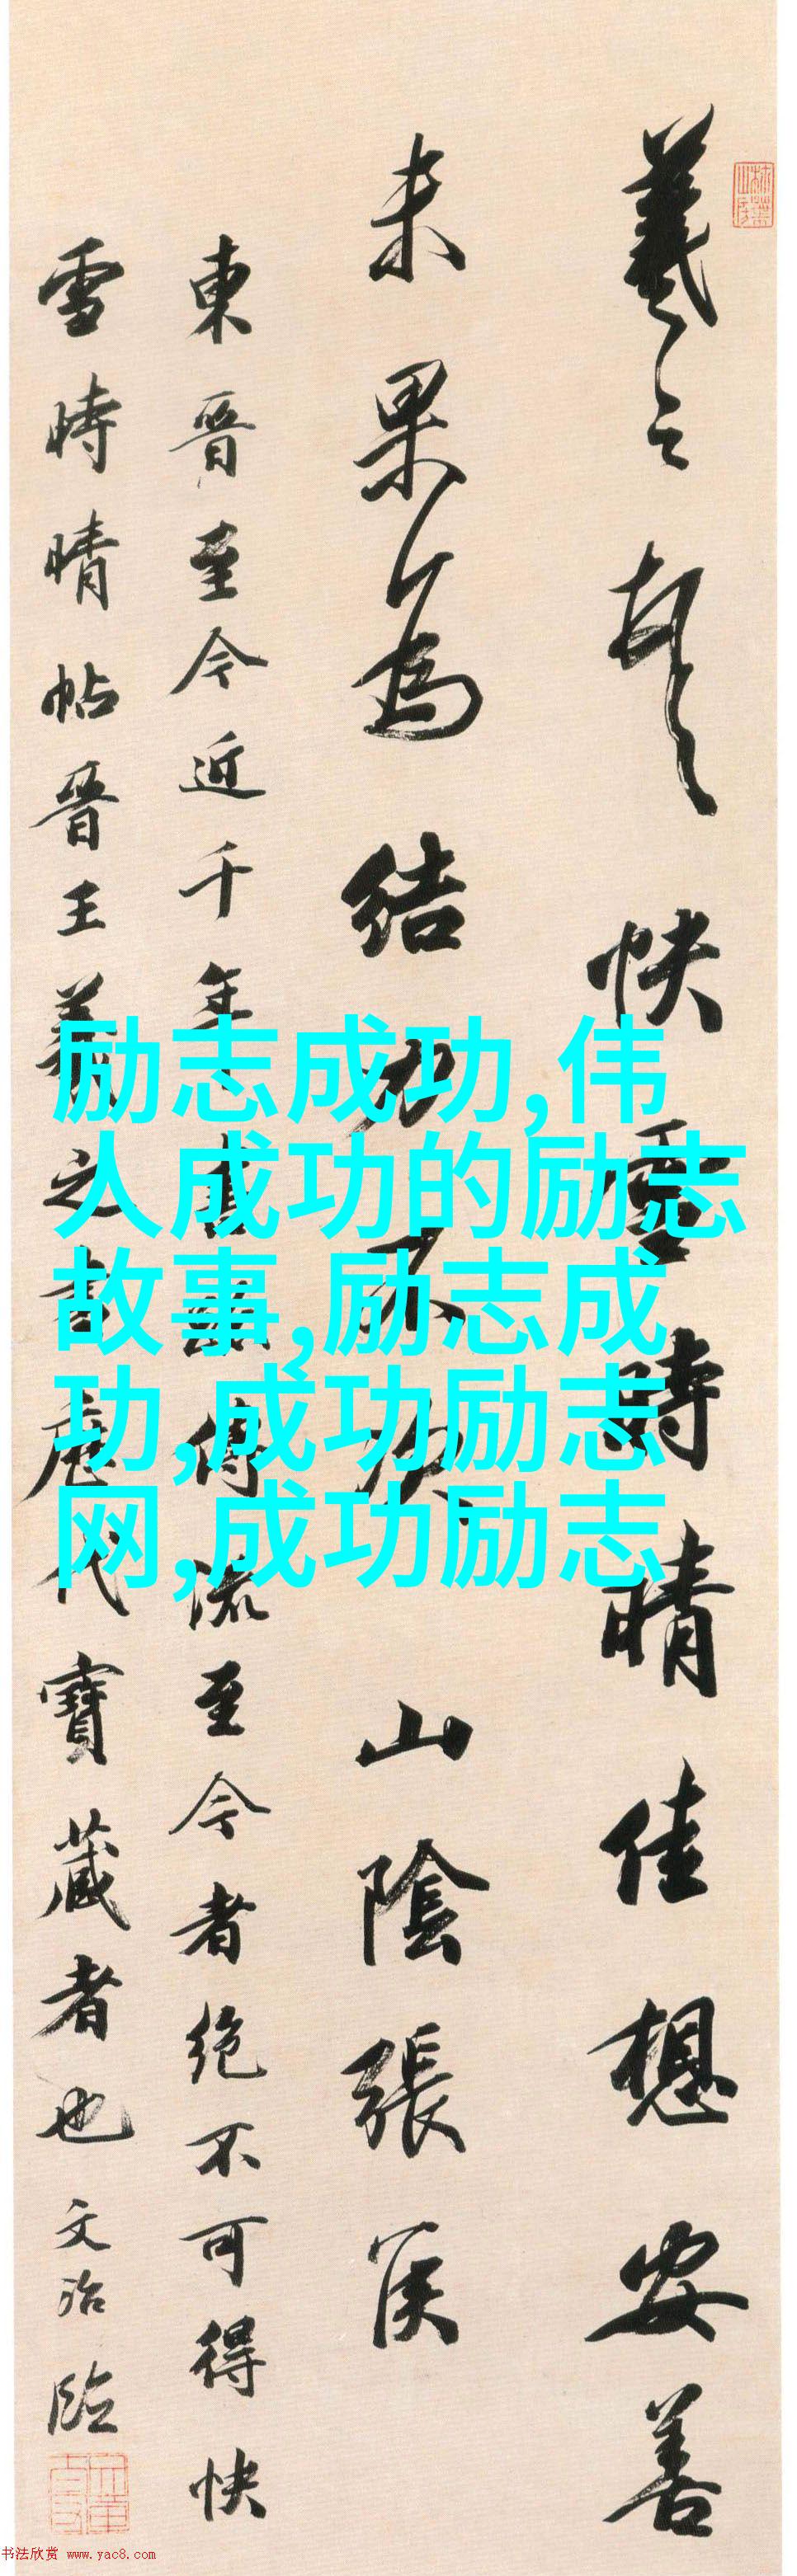 羲之頓首快雪時晴佳想安善
未果為結力不次 山陰張侯
東晉至今近千年書蹟傳流至今者絕不可得快
雪時晴帖晉王羲之書歷代寶藏者也文治臨
励志成功,伟
人成功的励志
故事,励志成
功,成功励志
网,成功励志
书法欣赏 www.yac8.com